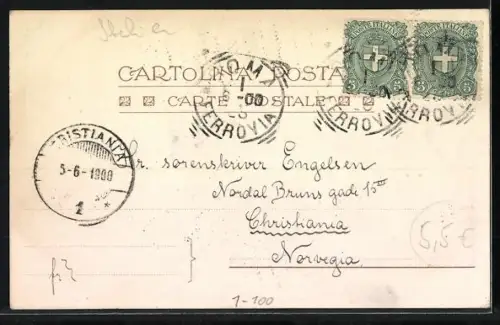 Italien
CARTOLINA POSTALE
CARTE POSTALE
ROMA
FERROVIA
1
-00
ROMA
FERROVIA
FERROVIA
5
5
KRISTIANIA
5-6-1900
1
Hr. sorenskriver Engelsen
Nordal Bruns gade 15
Christiania
Norvegia
5,5€
1-100